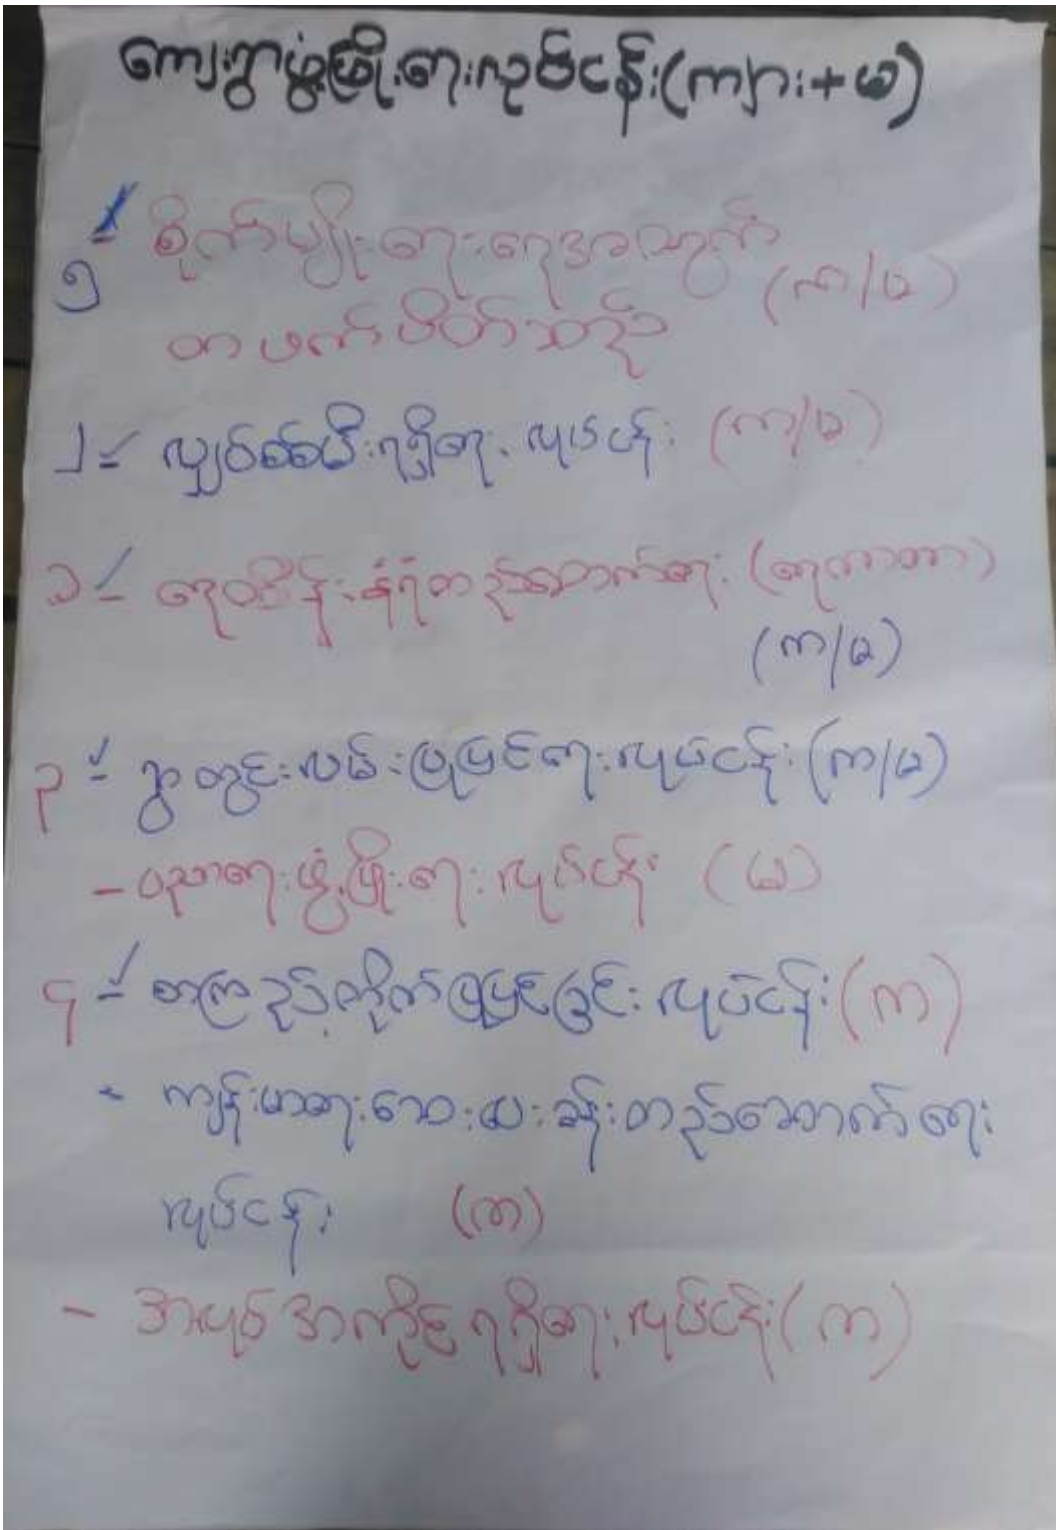 ကျေးရွာဖွံ့ဖြိုးရေးလုပ်ငန်း(ကျား+မ)
စိုက်ပျိုးရေးရေအတွက်
၅ (က/မ)
တဖက်ပိတ်ဆည်
၂ - လျှပ်စစ်မီးရရှိရေး လုပ်ငန်း (က/မ)
၁ - ရေထိန်းနံရံတည်ဆောက်ရေး (ရေကာတာ)
(က/မ)
၃ - ရွာတွင်းလမ်းပြုပြင်ရေးလုပ်ငန်း (က/မ)
- ပညာရေးဖွံ့ဖြိုးရေးလုပ်ငန်း (မ)
၄ - စာကြည့်တိုက်ပြုပြင်ခြင်းလုပ်ငန်း (က)
- ကျန်းမာရေးဆေးပေးခန်းတည်ဆောက်ရေး
လုပ်ငန်း (က)
- အလုပ်အကိုင်ရရှိရေးလုပ်ငန်း (က)